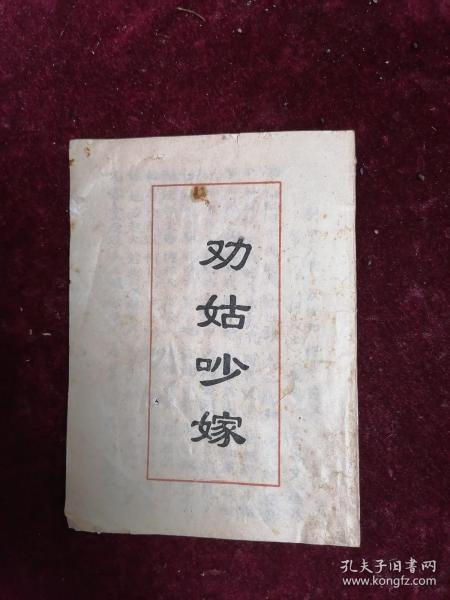 劝姑吵嫁
孔夫子旧书网
www.kongfz.com